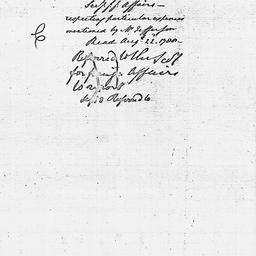 Affairs—
respecting particular expences
mentioned by Mr Jefferson
Read Augt 22. 1788
Referred to the Secy
for foreign Affairs
to report
Referred to